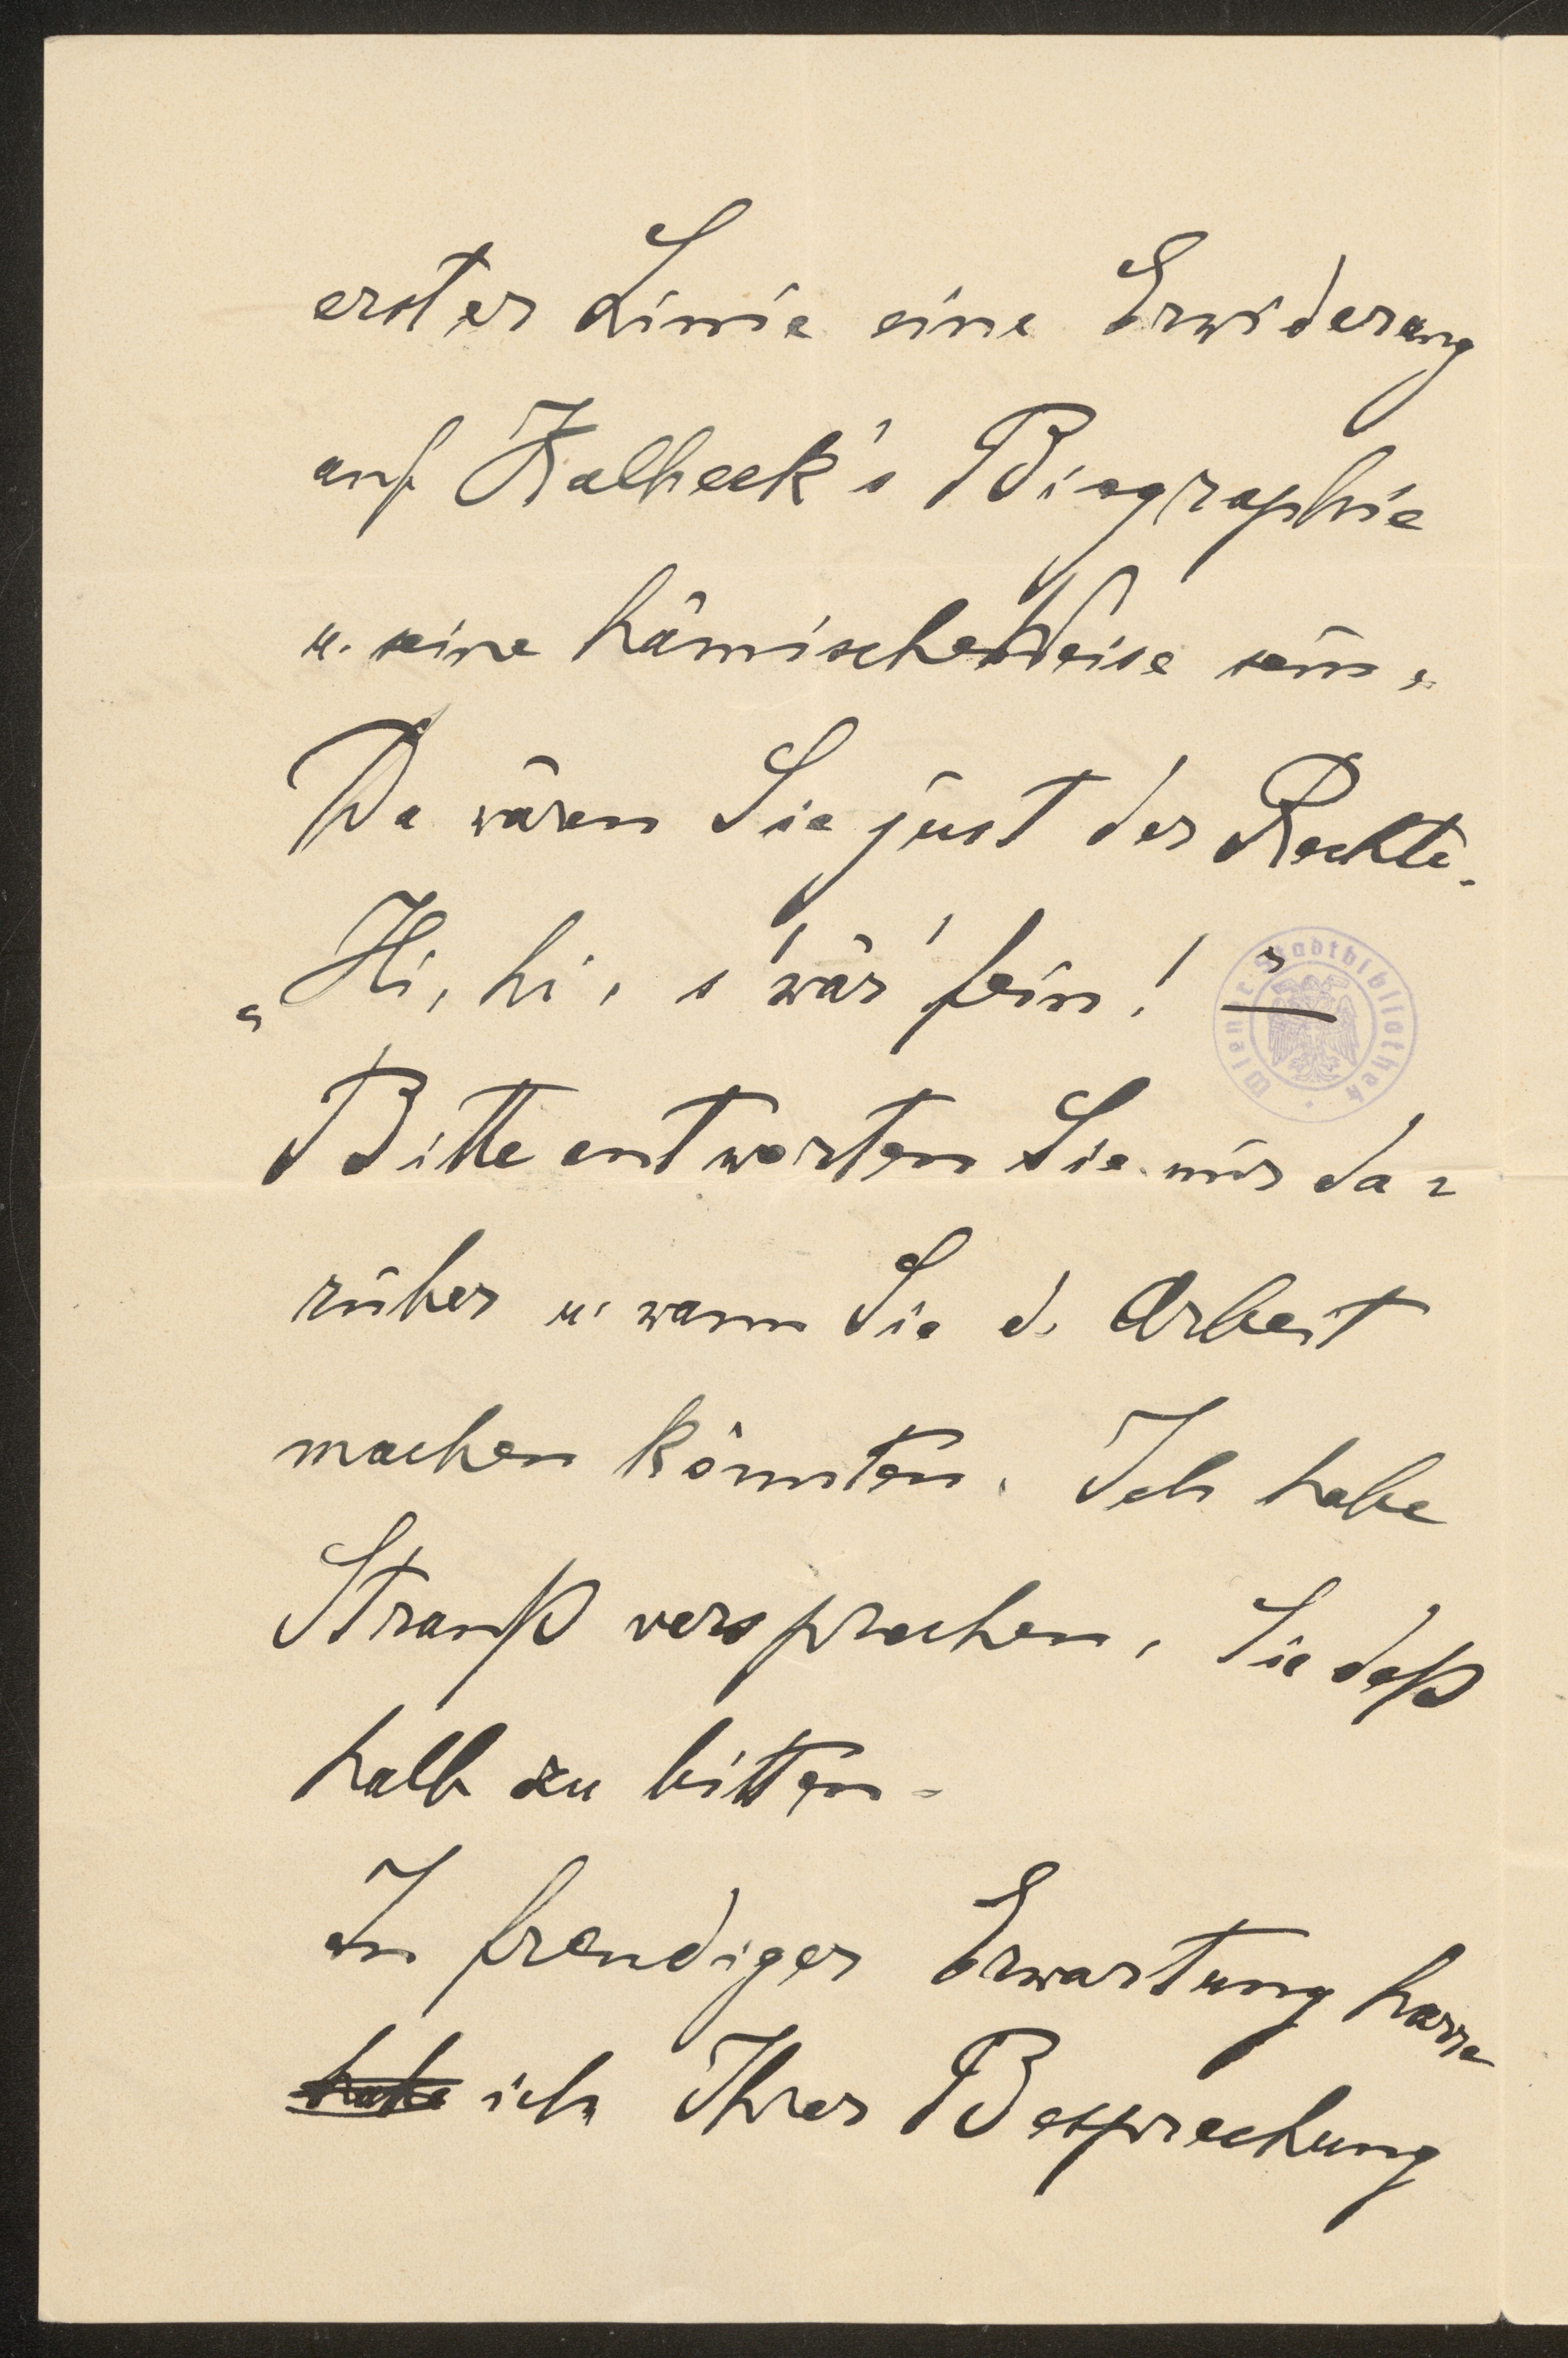 erster Linie eine Erwiderung
auf Kalbeck's Biographie
u. seine hämische Weise sein.
Da wären Sie just der Rechte.
„Hi, hi, s'wär' fein!"
Wiener Stadtbibliothek
Bitte antworten Sie mir da-
rüber u. wann Sie d. Arbeit
machen könnten. Ich habe
Strauß versprochen, Sie deß
halb zu bitten.
In freudiger Erwartung harre
habe ich Ihrer Besprechung